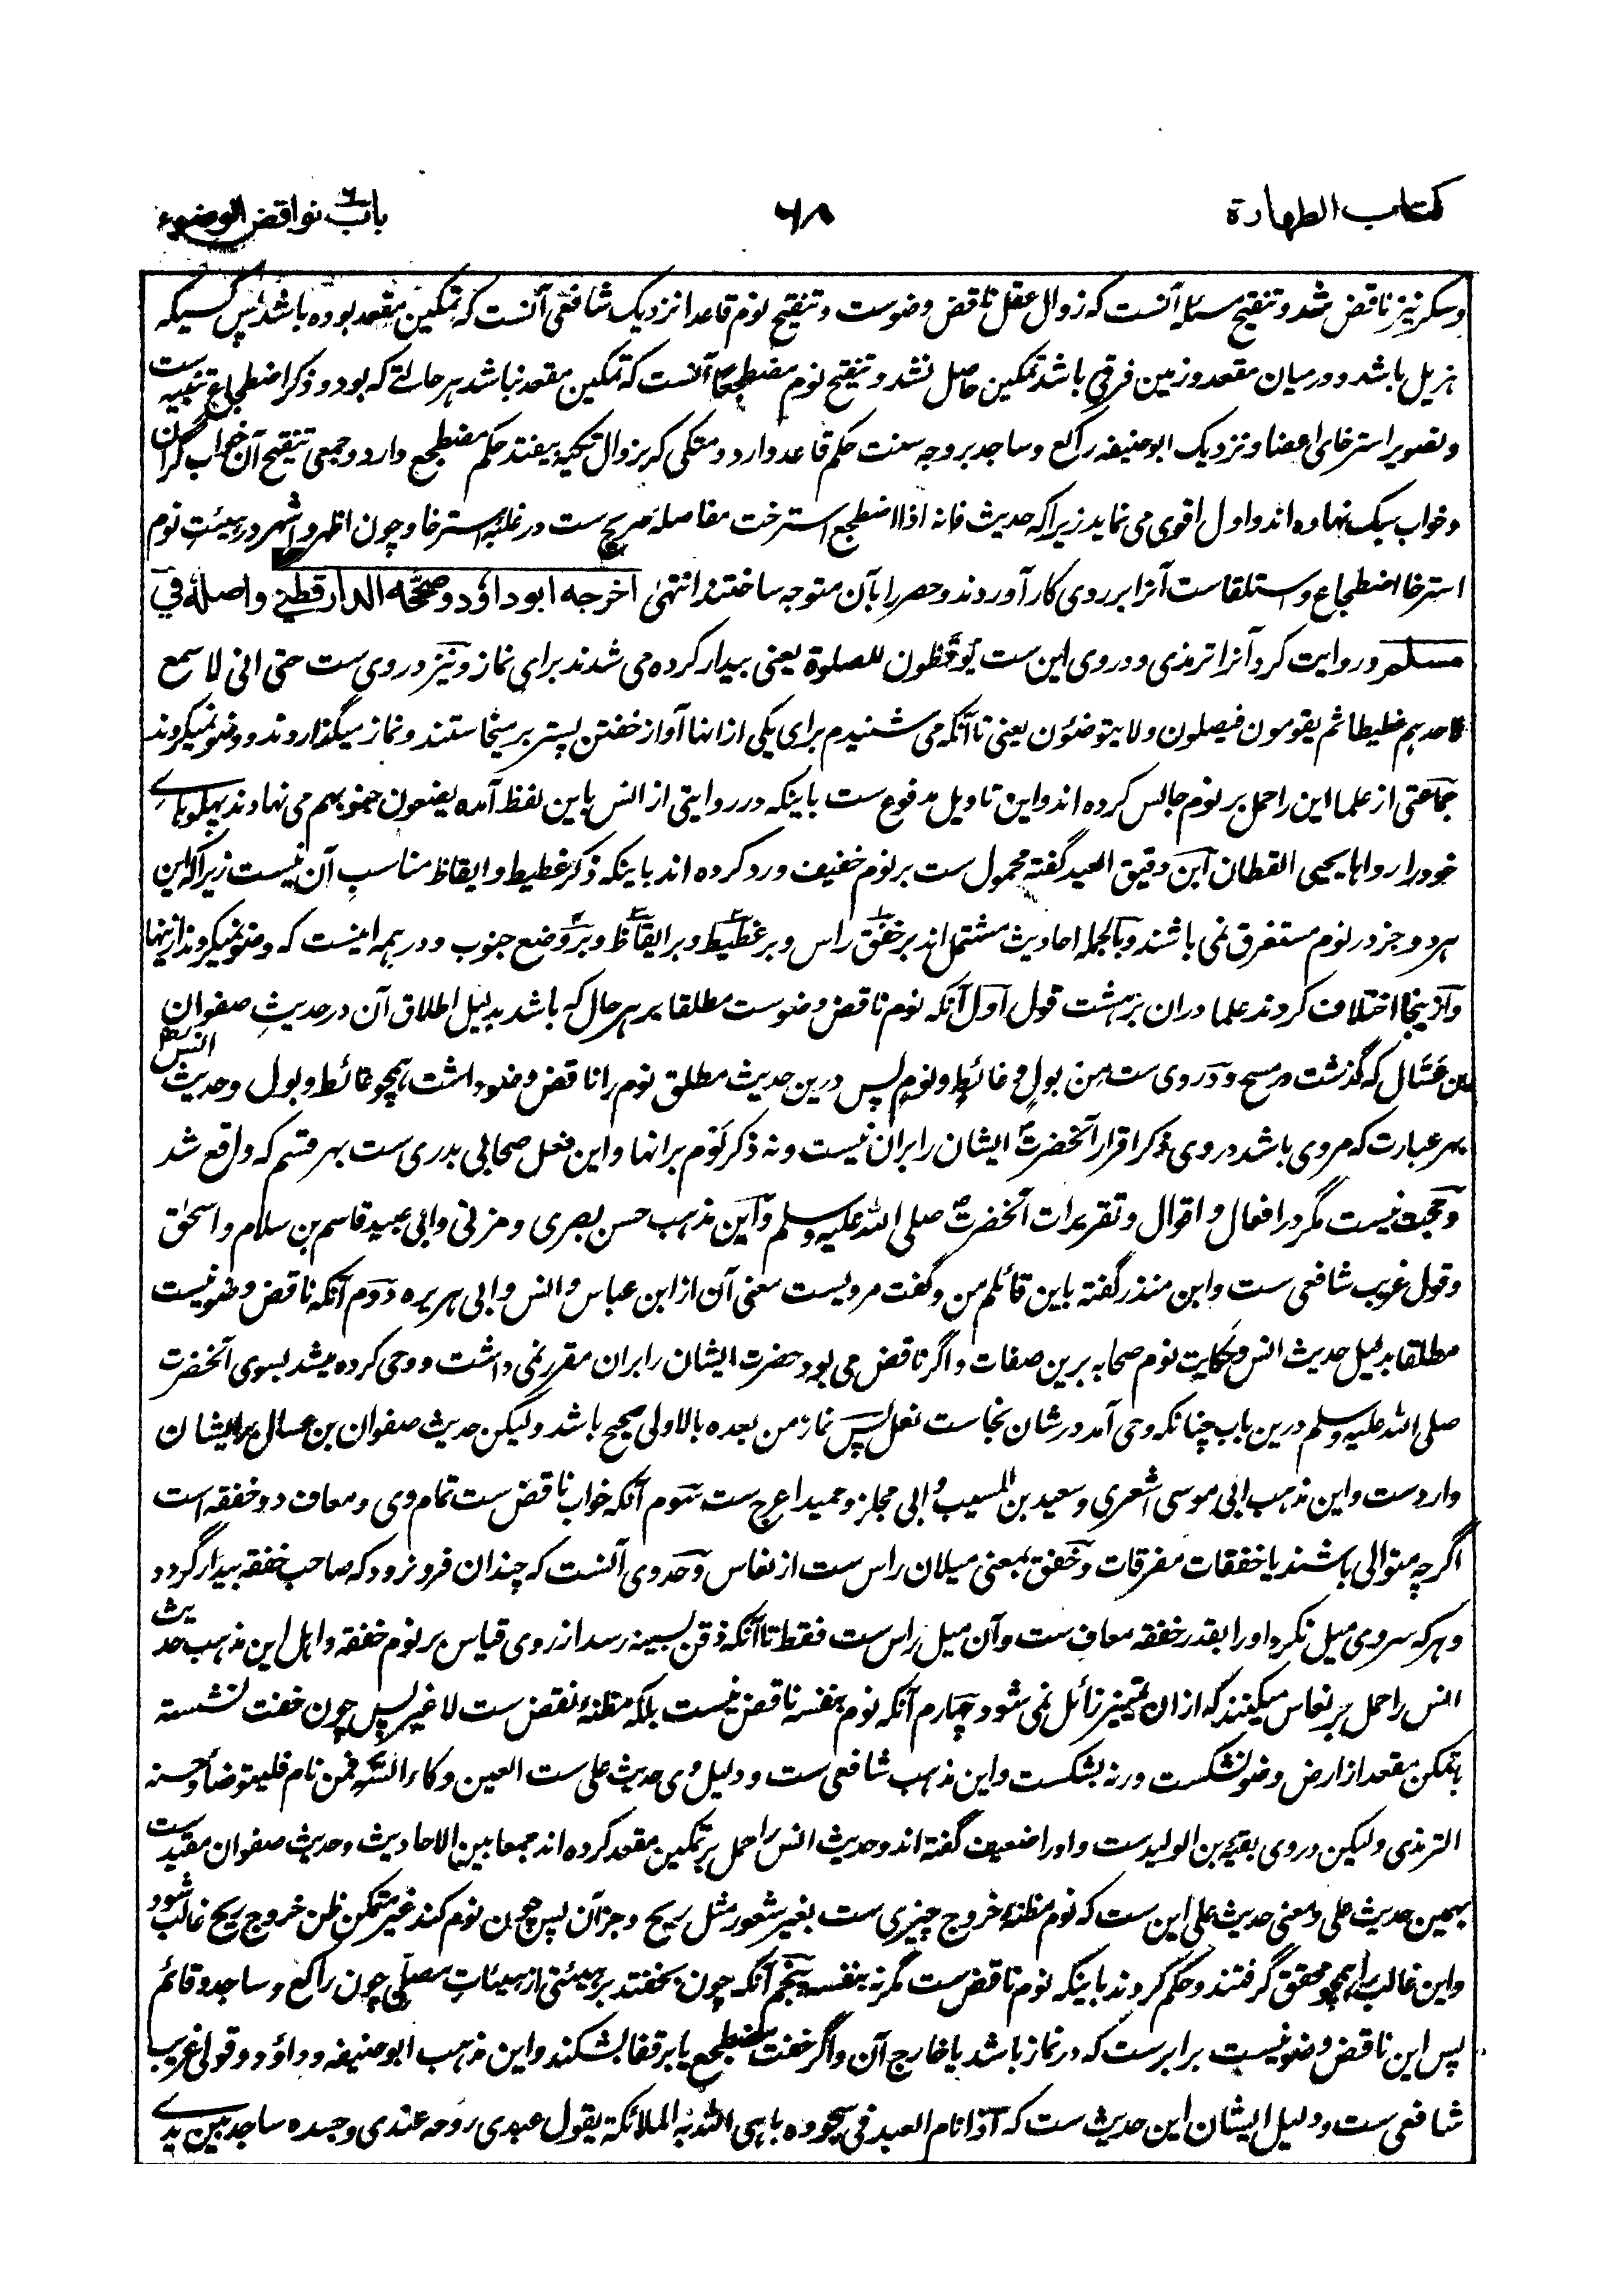 کتاب الطهارة
۶۸
باب نواقض الوضوء
وسکر نیز ناقض شد و تنقیح مسئله آنست که زوال عقل ناقض وضوست و تنقیح نوم قاعدا نزدیک شافعی آنست که تمکین مقعد بوده باشد پس کسیکه
هزیل باشد و درمیان مقعد و زمین فرقی باشد تمکین حاصل نشد و تنقیح نوم مضطجعا آنست که تمکین مقعد نباشد هر حالتے که بود و ذکر اضطجاع تنبیه ست
وتصویر استرخای اعضا و نزدیک ابوحنیفه راکع وساجد بروجه سنت حکم قاعد دارد و متکی که بزوال تکیه بیفتد حکم مضطجع دارد وجمعی تنقیح آن خواب گران
وخواب سبک نهاده اند و اول اقوی می نماید زیراکه حدیث فانه اذا اضطجع استرخت مفاصله صریح ست در غلبه استرخا و چون اظهر واشهر در هیئت نوم
استرخا اضطجاع و استلقاست آنرا برروی کار آوردند و حصر را بآن متوجه ساختند انتهی اخرجه ابوداؤد وصححه الدارقطنے واصله فی
مسلم و روایت کرد آنرا ترمذی و در وی این ست یوقظون للصلوة یعنی بیدار کرده می شدند برای نماز و نیز در وی ست حتی انی لاسمع
لاحدهم غطیطا ثم یقومون فیصلون ولا یتوضئون یعنی تا آنکه می شنیدم برای یکی ازانها آواز خفتن پستر برمیخاستند و نماز میگذاردند و وضو نمیکردند
جماعتی از علما این را حمل بر نوم جالس کرده اند و این تاویل مدفوع ست باینکه در روایتی از انس باین لفظ آمده یضعون جنوبهم می نهادند پهلوهاے
خود را رواها یحیی القطان ابن دقیق العید گفته محمول ست بر نوم خفیف و رد کرده اند باینکه ذکر غطیط و ایقاظ مناسب آن نیست زیراکه این
هر دو جز در نوم مستغرق نمی باشند و بالجمله احادیث مشتمل اند بر خفق راس و بر غطیط و بر ایقاظ و بر وضع جنوب و در همه اینست که وضو نمیکردند ازینها
و ازینجا اختلاف کردند علما دران بر هشت قول اول آنکه نوم ناقض وضوست مطلقا بر هر حال که باشد بدلیل اطلاق آن در حدیث صفوان
بن عسّال که گذشت در مسح و در وی ست من بول وغائط ونوم پس درین حدیث مطلق نوم را ناقض وضو داشت همچو غائط و بول و حدیث انس
بهر عبارت که مروی باشد در وی ذکر اقرار آنحضرت ایشان را بران نیست و نه ذکر نوم برانها و این فعل صحابی بدری ست بهر قسم که واقع شد
وحجت نیست مگر در افعال و اقوال و تقریرات آنحضرت صلی الله علیه وسلم و این مذهب حسن بصری و مزنی و ابی عبید قاسم بن سلام و اسحٰق
وقول غریب شافعی ست و ابن منذر گفته باین قائلم من و گفت مرویست معنی آن از ابن عباس و انس و ابی هریره دوم آنکه ناقض وضو نیست
مطلقا بدلیل حدیث انس و حکایت نوم صحابه برین صفات و اگر ناقض می بود حضرت ایشان را بران مقرر نمی داشت و وحی کرده میشد بسوی آنحضرت
صلی الله علیه وسلم درین باب چنانکه وحی آمد در شان نجاست نعل پس نماز من بعده بالاولی صحیح باشد ولیکن حدیث صفوان بن عسال بر ایشان
وارد ست و این مذهب ابی موسی اشعری و سعید بن المسیب و ابی مجلز و حمید اعرج ست سوم آنکه خواب ناقض ست تمام وی و معاف دو خفقه است
اگرچه متوالی باشند یا خفقات متفرقات و خفق بمعنی میلان راس ست از نعاس و حد وی آنست که چندان فرو نرود که صاحب خفقه بیدار گردد
و هرکه سر وی میل نکرد او را بقدر خفقه معاف ست و آن میل راس ست فقط تا آنکه ذقن بسینه رسد از روی قیاس بر نوم خفقه و اهل این مذهب حدیث
انس را حمل بر نعاس میکنند که ازان تمییز زائل نمی شود چهارم آنکه نوم بنفسه ناقض نیست بلکه مظنه نقض ست لا غیر پس چون خفت نشسته
بتمکن مقعد از ارض وضو نشکست ورنه بشکست و این مذهب شافعی ست و دلیل وی حدیث علی ست العین وکاء السّه فمن نام فلیتوضا وحسنه
الترمذی ولیکن در وی بقیه بن الولید ست و او را ضعیف گفته اند و حدیث انس را حمل بر تمکین مقعد کرده اند جمعا بین الاحادیث و حدیث صفوان مقید ست
بهمین حدیث علی و معنی حدیث علی این ست که نوم مظنه خروج چیزی ست بغیر شعور مثل ریح و جز آن پس چون نوم کند غیر متمکن ظن خروج ریح غالب شود
و این غالب را همچو محقق گرفتند و حکم کردند باینکه نوم ناقض ست مگر نه بنفسه پنجم آنکه چون بخفتد بر هیئتی از هیئات مصلی چون راکع و ساجد و قائم
پس این ناقض وضو نیست برابر ست که در نماز باشد یا خارج آن و اگر خفت مضطجع یا بر قفا بشکند و این مذهب ابوحنیفه و داؤد و قول غریب
شافعی ست و دلیل ایشان این حدیث ست که اذا نام العبد فی سجوده باهی الله به الملائکة یقول عبدی روحه عندی وجسده ساجد بین یدے